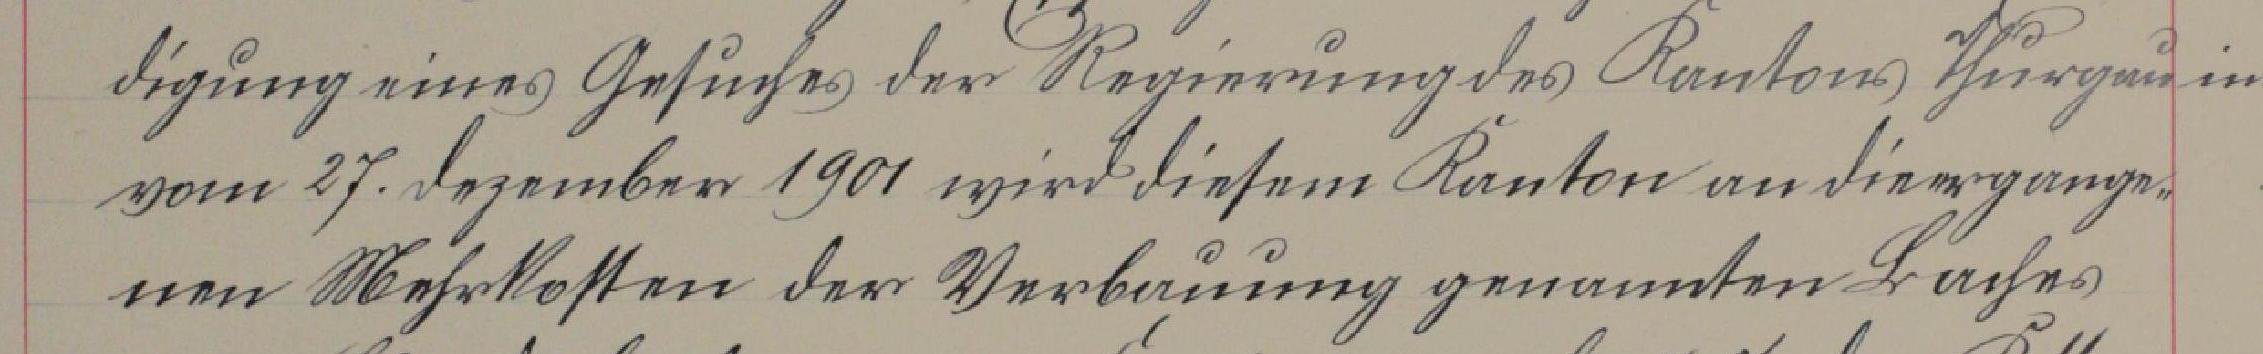 digung eines Gesuches der Regierung des Kantons Thurgau in
vom 27. Dezember 1901 wird diesem Kanton an die ergange-
nen Mehrkosten der Verbauung genannten Baches